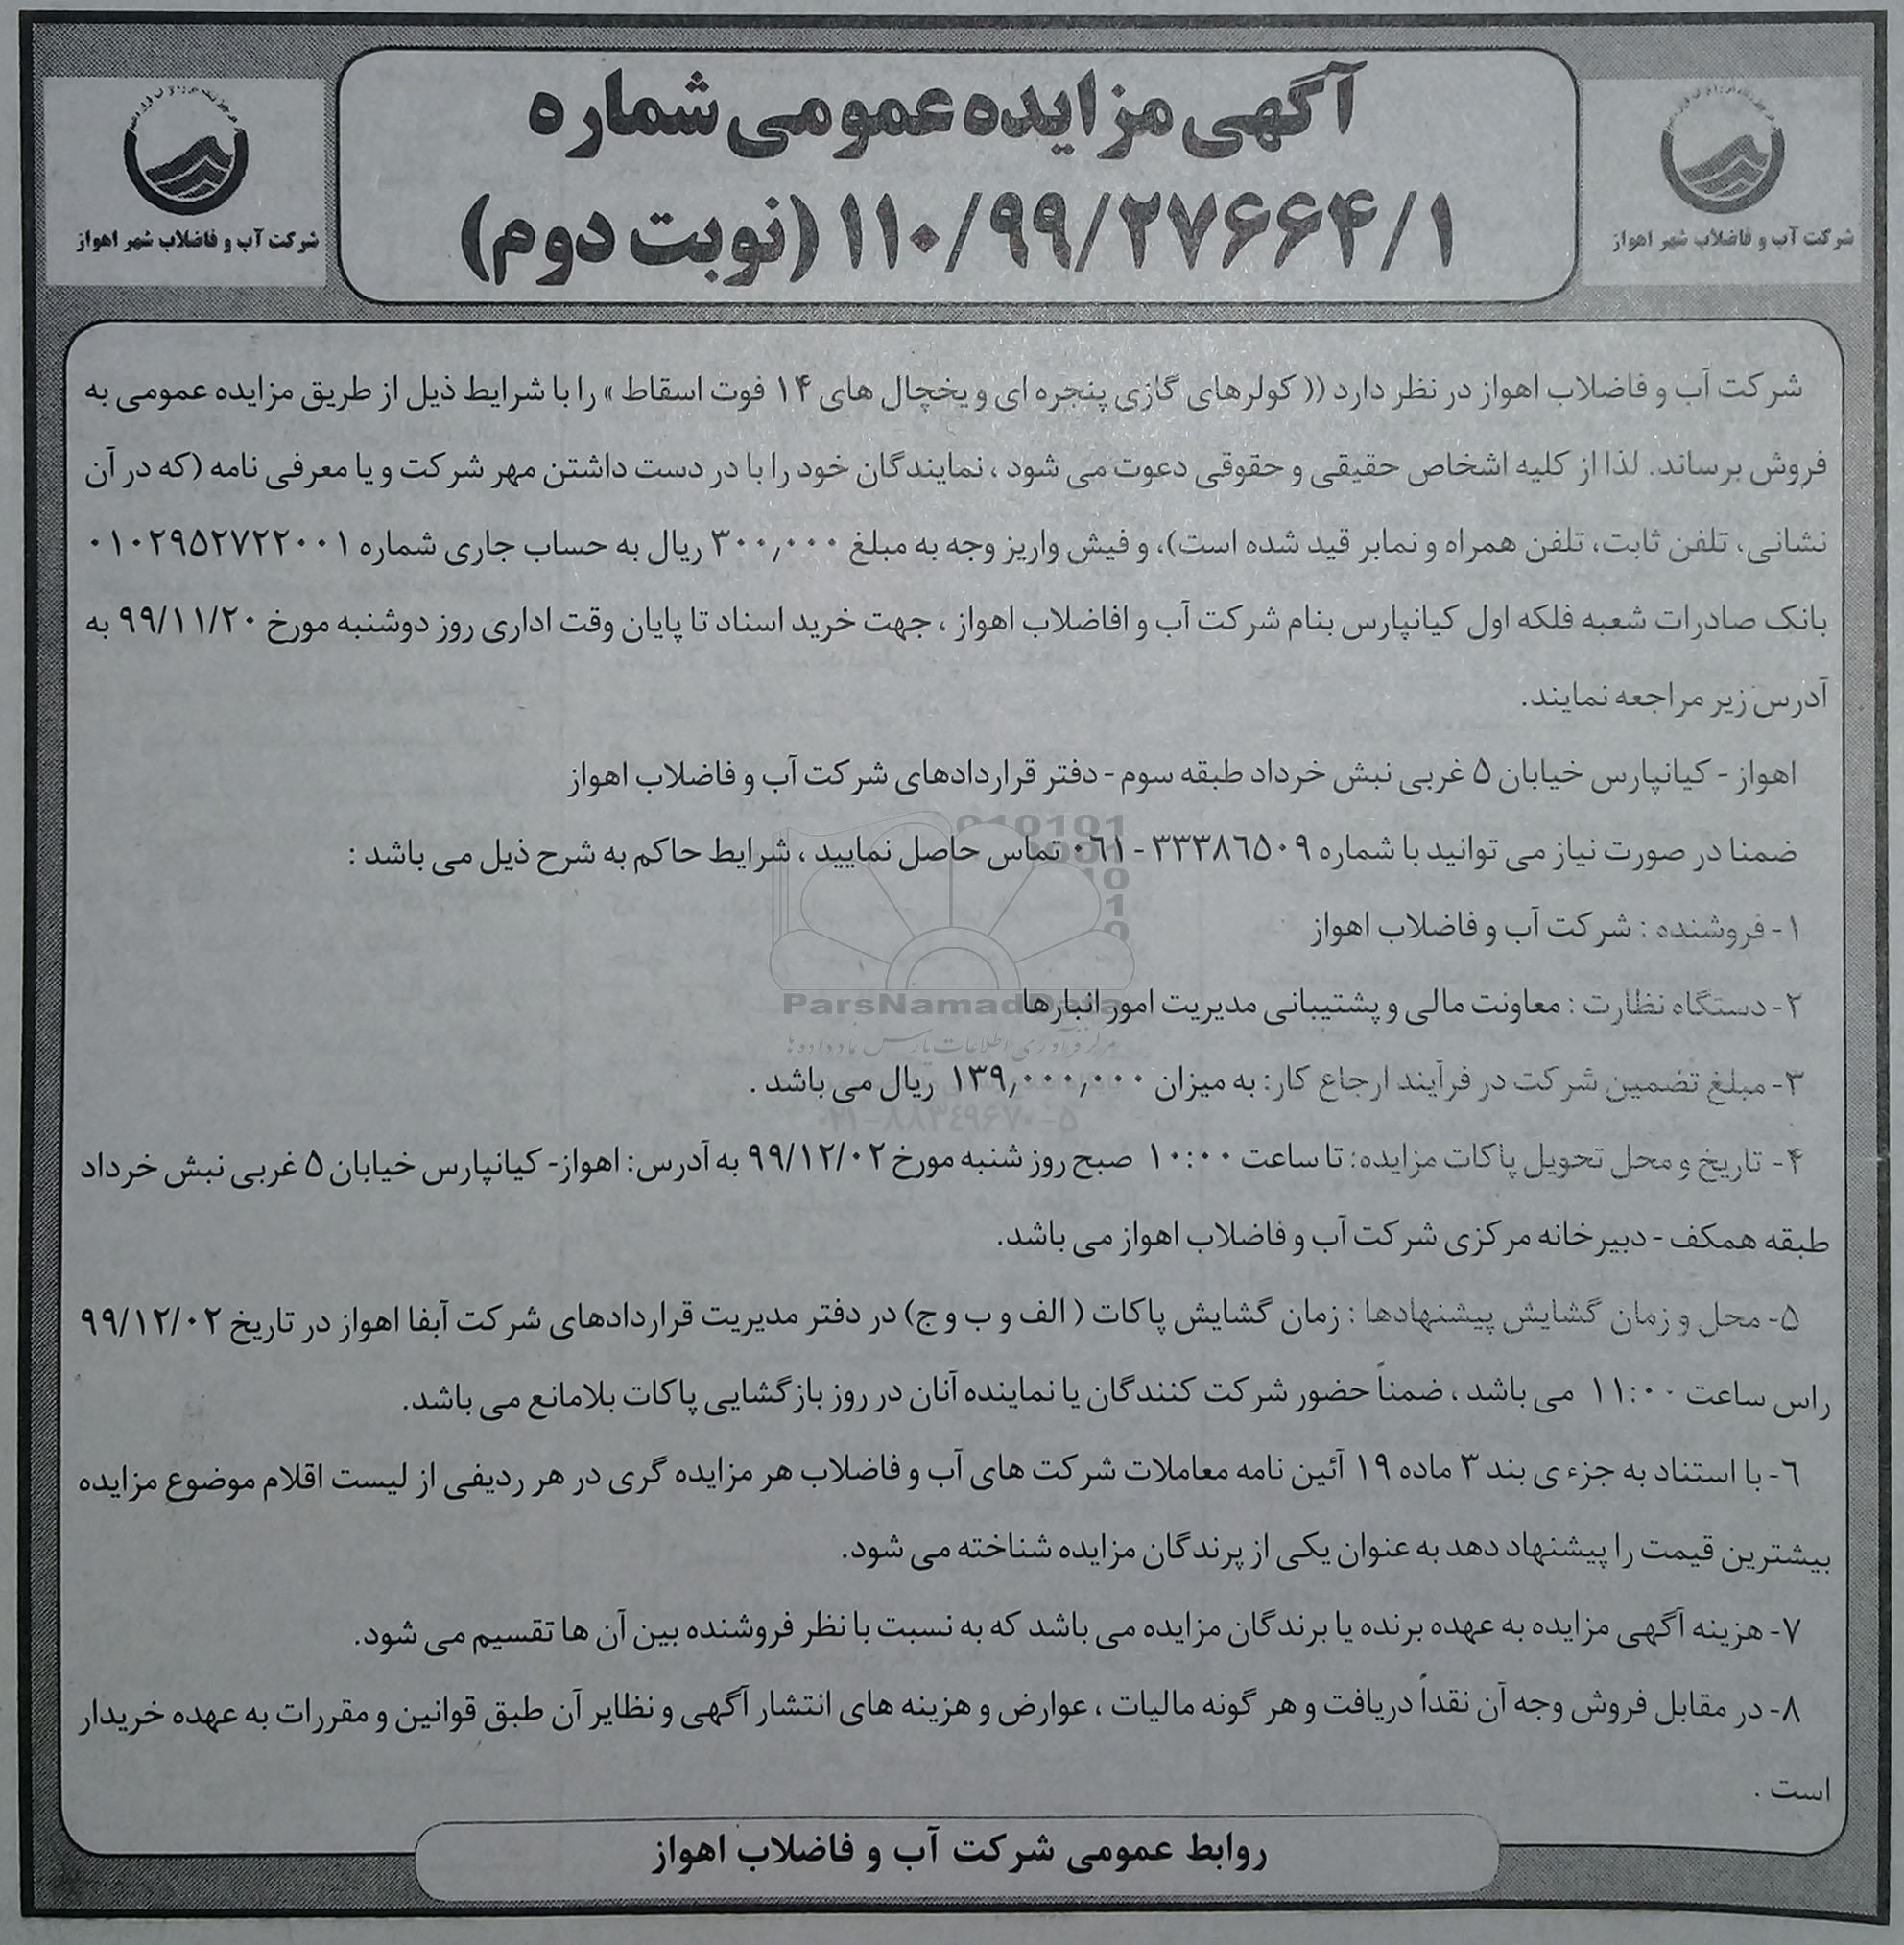 آگهی مزایده عمومی شماره
۱۱۰/۹۹/۲۷۶۶۴/۱ (نوبت دوم)
شرکت آب و فاضلاب شهر اهواز
شرکت آب و فاضلاب شهر اهواز
شرکت آب و فاضلاب اهواز در نظر دارد (( کولرهای گازی پنجره ای و یخچال های ۱۴ فوت اسقاط » را با شرایط ذیل از طریق مزایده عمومی به
فروش برساند. لذا از کلیه اشخاص حقیقی و حقوقی دعوت می شود ، نمایندگان خود را با در دست داشتن مهر شرکت و یا معرفی نامه (که در آن
نشانی، تلفن ثابت، تلفن همراه و نمابر قید شده است)، و فیش واریز وجه به مبلغ ۳۰۰,۰۰۰ ریال به حساب جاری شماره ۰۱۰۲۹۵۲۷۲۲۰۰۱
بانک صادرات شعبه فلکه اول کیانپارس بنام شرکت آب و افاضلاب اهواز ، جهت خرید اسناد تا پایان وقت اداری روز دوشنبه مورخ ۹۹/۱۱/۲۰ به
آدرس زیر مراجعه نمایند.
اهواز - کیانپارس خیابان ۵ غربی نبش خرداد طبقه سوم - دفتر قراردادهای شرکت آب و فاضلاب اهواز
ضمنا در صورت نیاز می توانید با شماره ۳۳۳۸۶۵۰۹ - ۰۶۱ تماس حاصل نمایید ، شرایط حاکم به شرح ذیل می باشد :
۱- فروشنده : شرکت آب و فاضلاب اهواز
۲- دستگاه نظارت : معاونت مالی و پشتیبانی مدیریت امور انبارها
ParsNamadData
مرکز فرآوری اطلاعات پارس نماد داده ها
۳- مبلغ تضمین شرکت در فرآیند ارجاع کار: به میزان ۱۳۹,۰۰۰,۰۰۰ ریال می باشد .
۰۲۱-۸۸۳۴۹۶۷۰-۵
۴- تاریخ و محل تحویل پاکات مزایده: تا ساعت ۱۰:۰۰ صبح روز شنبه مورخ ۹۹/۱۲/۰۲ به آدرس: اهواز- کیانپارس خیابان ۵ غربی نبش خرداد
طبقه همکف - دبیرخانه مرکزی شرکت آب و فاضلاب اهواز می باشد.
۵- محل و زمان گشایش پیشنهادها : زمان گشایش پاکات ( الف و ب و ج) در دفتر مدیریت قراردادهای شرکت آبفا اهواز در تاریخ ۹۹/۱۲/۰۲
راس ساعت ۱۱:۰۰ می باشد ، ضمناً حضور شرکت کنندگان یا نماینده آنان در روز بازگشایی پاکات بلامانع می باشد.
۶- با استناد به جزء ی بند ۳ ماده ۱۹ آئین نامه معاملات شرکت های آب و فاضلاب هر مزایده گری در هر ردیفی از لیست اقلام موضوع مزایده
بیشترین قیمت را پیشنهاد دهد به عنوان یکی از پرندگان مزایده شناخته می شود.
۷- هزینه آگهی مزایده به عهده برنده یا برندگان مزایده می باشد که به نسبت با نظر فروشنده بین آن ها تقسیم می شود.
۸- در مقابل فروش وجه آن نقداً دریافت و هر گونه مالیات ، عوارض و هزینه های انتشار آگهی و نظایر آن طبق قوانین و مقررات به عهده خریدار
است .
روابط عمومی شرکت آب و فاضلاب اهواز